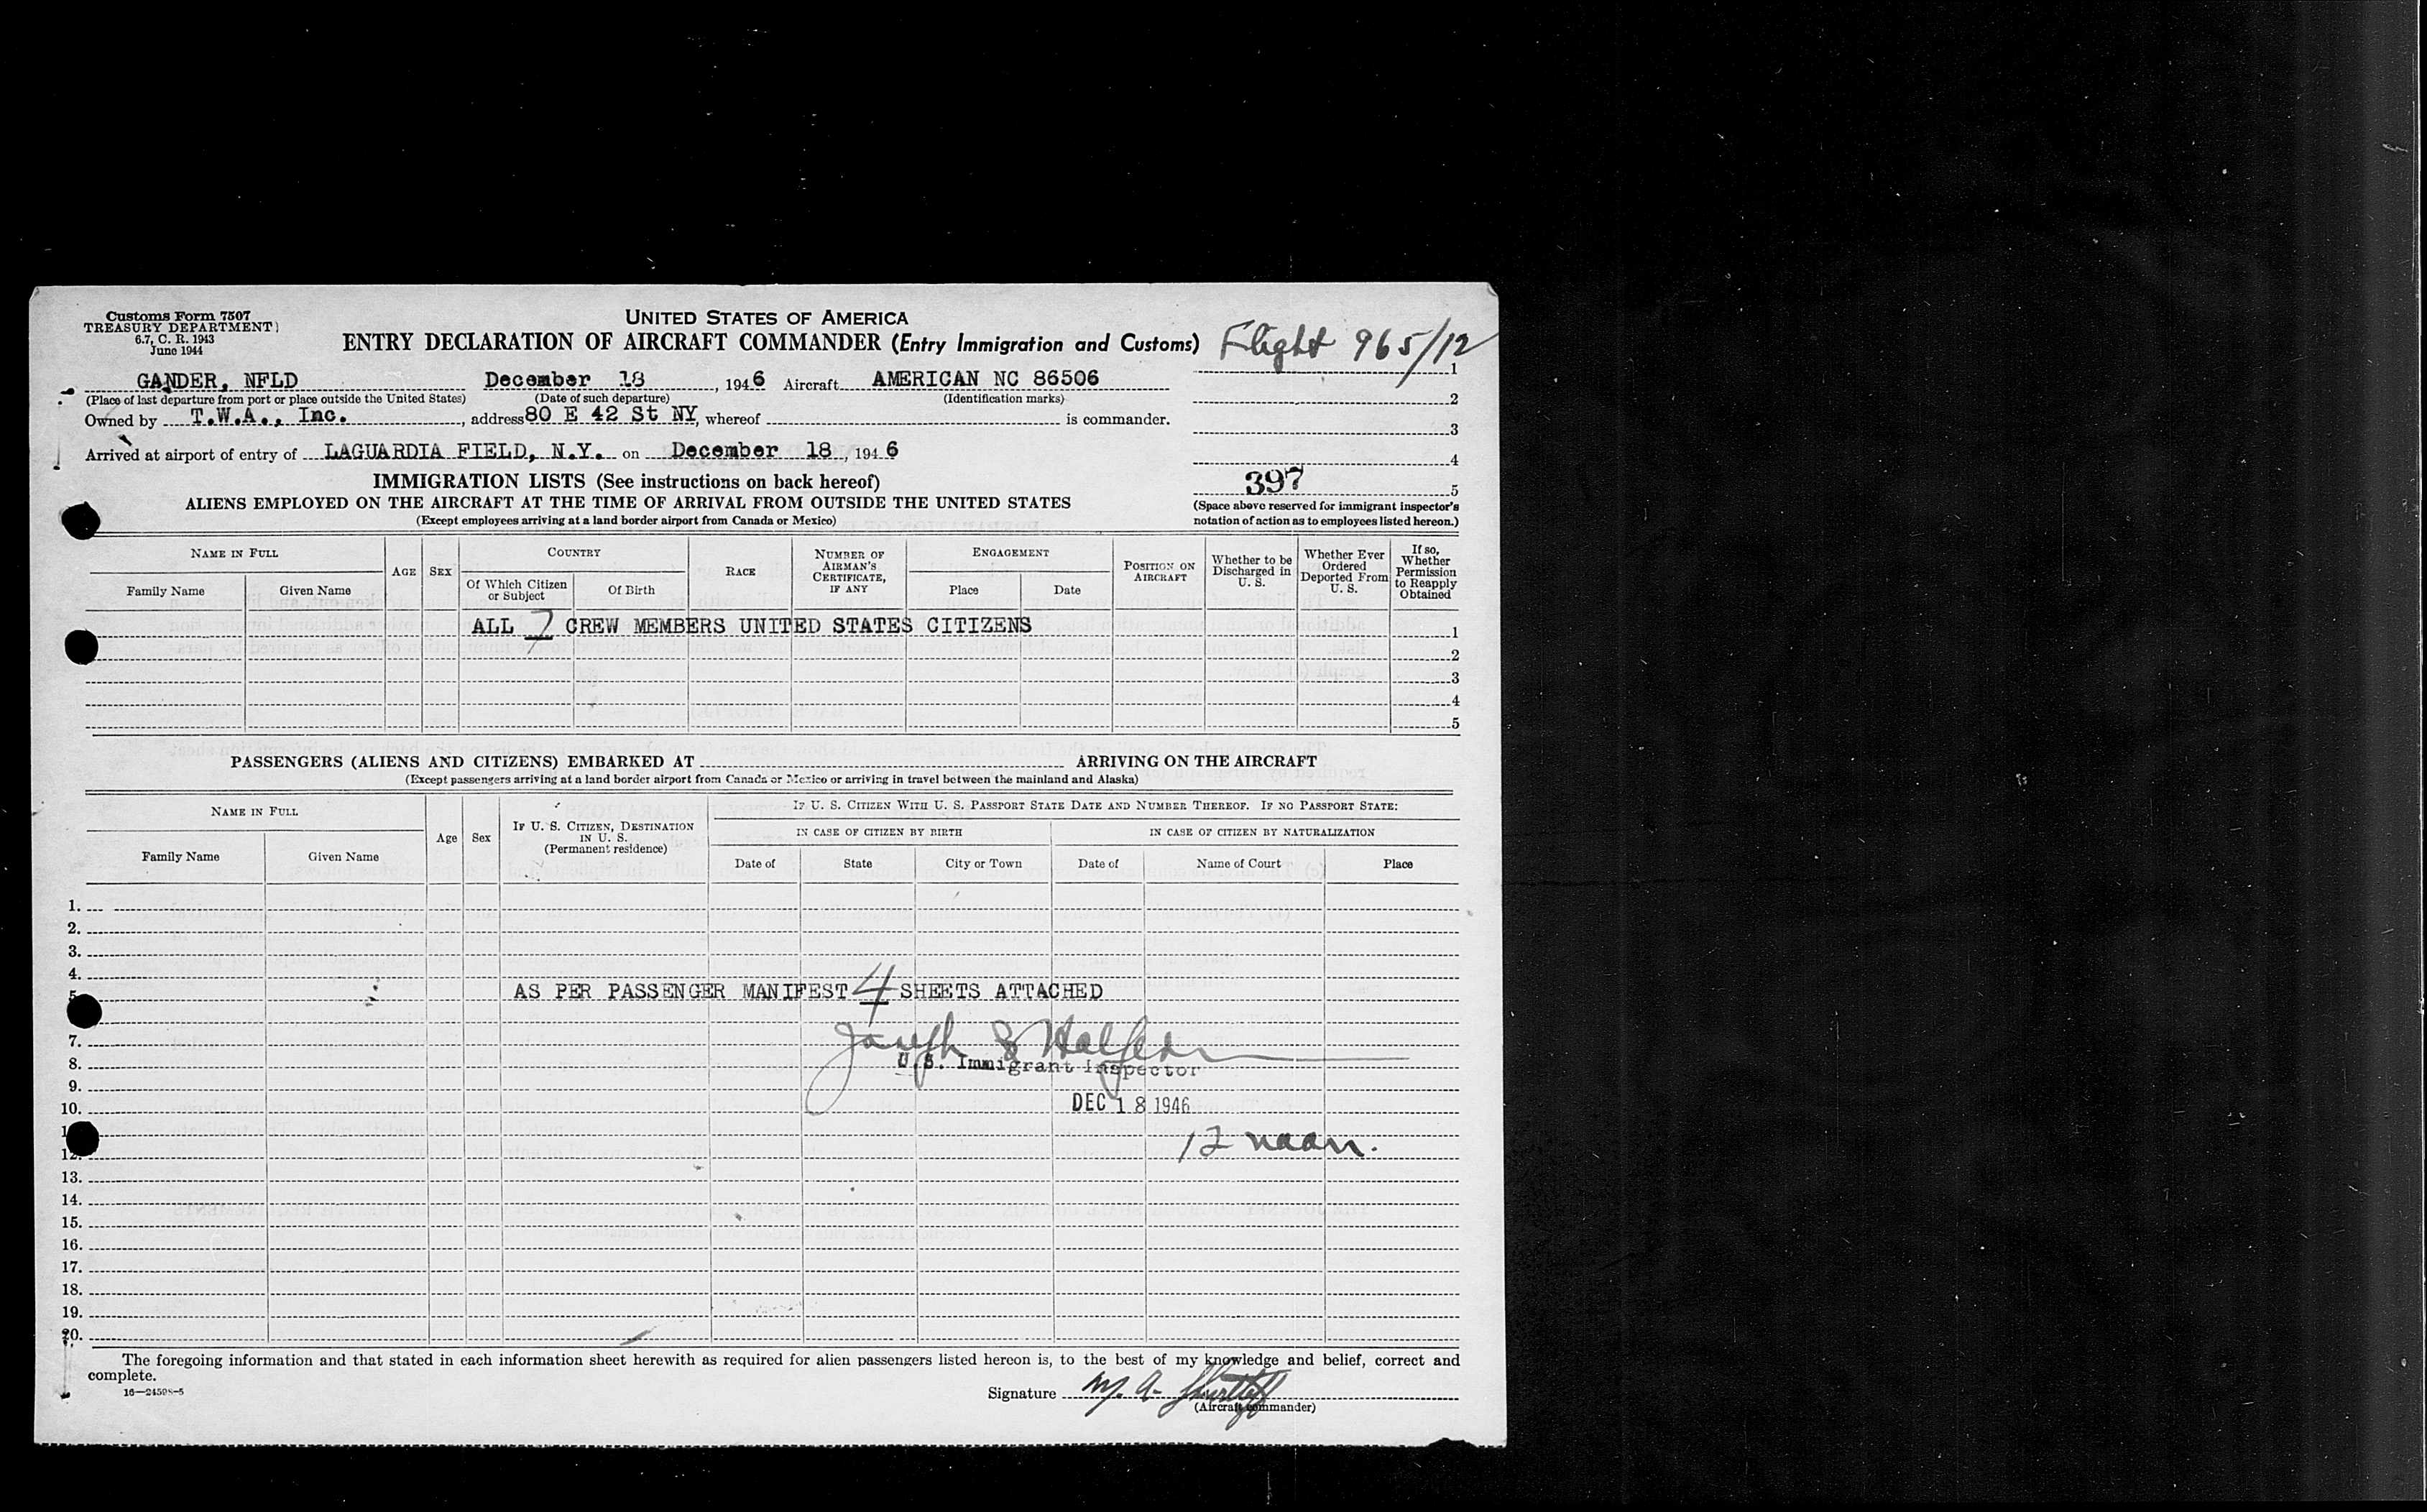 Customs Form 7507
TREASURY DEPARTMENT)
6.7, C. R. 1943
June 1944
UNITED STATES OF AMERICA
ENTRY DECLARATION OF AIRCRAFT COMMANDER (Entry Immigration and Customs)
Flight 965/12
GANDER, NFLD December 18, 1946 Aircraft AMERICAN NC 86506
(Place of last departure from port or place outside the United States) (Date of such departure) (Identification marks)
Owned by T.W.A., Inc., address 80 E 42 St NY, whereof is commander.
Arrived at airport of entry of LAGUARDIA FIELD, N.Y. on December 18, 1946
1
2
3
4
397 5
(Space above reserved for immigrant inspector's
notation of action as to employees listed hereon.)
IMMIGRATION LISTS (See instructions on back hereof)
ALIENS EMPLOYED ON THE AIRCRAFT AT THE TIME OF ARRIVAL FROM OUTSIDE THE UNITED STATES
(Except employees arriving at a land border airport from Canada or Mexico)
NAME IN FULL
Family Name Given Name
AGE SEX
COUNTRY
Of Which Citizen or Subject Of Birth
RACE
NUMBER OF AIRMAN'S CERTIFICATE, IF ANY
ENGAGEMENT
Place Date
POSITION ON AIRCRAFT
Whether to be Discharged in U. S.
Whether Ever Ordered Deported From U. S.
If so, Whether Permission to Reapply Obtained
ALL 7 CREW MEMBERS UNITED STATES CITIZENS 1
2
3
4
5
PASSENGERS (ALIENS AND CITIZENS) EMBARKED AT ARRIVING ON THE AIRCRAFT
(Except passengers arriving at a land border airport from Canada or Mexico or arriving in travel between the mainland and Alaska)
NAME IN FULL
Family Name Given Name
Age Sex
IF U. S. CITIZEN, DESTINATION IN U. S.
(Permanent residence)
IF U. S. CITIZEN WITH U. S. PASSPORT STATE DATE AND NUMBER THEREOF. IF NO PASSPORT STATE:
IN CASE OF CITIZEN BY BIRTH IN CASE OF CITIZEN BY NATURALIZATION
Date of State City or Town Date of Name of Court Place
1.
2.
3.
4.
5 AS PER PASSENGER MANIFEST 4 SHEETS ATTACHED
7. Joseph S Halpern
8. U.S. Immigrant Inspector
9.
10. DEC 18 1946
12 noon.
12.
13.
14.
15.
16.
17.
18.
19.
20.
The foregoing information and that stated in each information sheet herewith as required for alien passengers listed hereon is, to the best of my knowledge and belief, correct and
complete.
16—24598-5
Signature M. A. Shurtleff
(Aircraft commander)